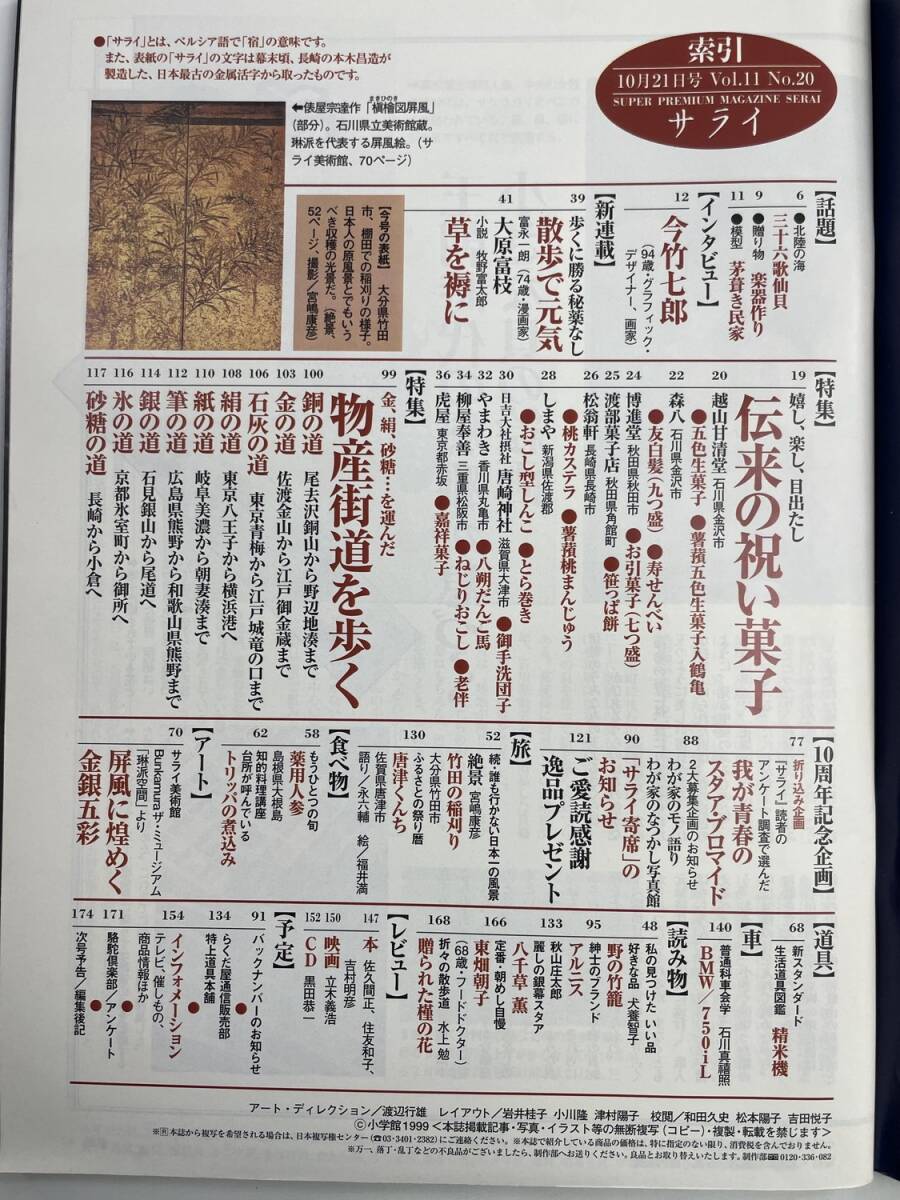 ●「サライ」とは、ペルシア語で「宿」の意味です。
また、表紙の「サライ」の文字は幕末頃、長崎の本木昌造が
製造した、日本最古の金属活字から取ったものです。
索引
10月21日号 Vol.11 No.20
SUPER PREMIUM MAGAZINE SERAI
サライ
←俵屋宗達作「槇檜図屏風」
まきひのき
(部分)。石川県立美術館蔵。
琳派を代表する屏風絵。(サ
ライ美術館、70ページ)
【話題】
6
●北陸の海
三十六歌仙貝
9
●贈り物 楽器作り
11
●模型 茅葺き民家
【インタビュー】
12
今竹七郎
(94歳・グラフィック・
デザイナー、画家)
【新連載】
39
歩くに勝る秘薬なし
散歩で元気
富永一朗(74歳・漫画家)
41
大原富枝
小説 牧野富太郎
草を褥に
【今号の表紙】 大分県竹田
市、棚田での稲刈りの様子。
日本人の原風景とでもいう
べき収穫の光景だ。(絶景、
52ページ、撮影/宮嶋康彦)
【特集】
19
嬉し、楽し、目出たし
伝来の祝い菓子
20
越山甘清堂 石川県金沢市
●五色生菓子 ●薯蕷五色生菓子入鶴亀
22
森八 石川県金沢市
●友白髪(九つ盛) ●寿せんべい
24
博進堂 秋田県秋田市 ●お引菓子(七つ盛)
25
渡部菓子店 秋田県角館町 ●笹っぱ餅
26
松翁軒 長崎県長崎市
●桃カステラ ●薯蕷桃まんじゅう
28
しまや 新潟県佐渡郡
●おこし型しんこ ●とら巻き
30
日吉大社摂社 唐崎神社 滋賀県大津市 ●御手洗団子
32
やまわき 香川県丸亀市 ●八朔だんご馬
34
柳屋奉善 三重県松阪市 ●ねじりおこし ●老伴
36
虎屋 東京都赤坂 ●嘉祥菓子
【特集】
99
金、絹、砂糖…を運んだ
物産街道を歩く
100
銅の道 尾去沢銅山から野辺地湊まで
103
金の道 佐渡金山から江戸御金蔵まで
106
石灰の道 東京青梅から江戸城竜の口まで
108
絹の道 東京八王子から横浜港へ
110
紙の道 岐阜美濃から朝妻湊まで
112
筆の道 広島県熊野から和歌山県熊野まで
114
銀の道 石見銀山から尾道へ
116
氷の道 京都氷室町から御所へ
117
砂糖の道 長崎から小倉へ
【10周年記念企画】
77
折り込み企画
「サライ」読者の
アンケート調査で選んだ
我が青春の
スタア・ブロマイド
88
2大募集企画のお知らせ
わが家のモノ語り
わが家のなつかし写真館
90
「サライ寄席」の
お知らせ
121
ご愛読感謝
逸品プレゼント
【旅】
52
続・誰も行かない日本一の風景
絶景 宮嶋康彦
竹田の稲刈り
大分県竹田市
130
ふるさとの祭り暦
唐津くんち
佐賀県唐津市
語り/永六輔 絵/福井満
【食べ物】
58
もうひとつの旬
薬用人参
島根県大根島
62
知的料理講座
台所が呼んでいる
トリッパの煮込み
【アート】
70
サライ美術館
Bunkamuraザ・ミュージアム
「琳派空間」より
屏風に煌めく
金銀五彩
【道具】
68
新スタンダード
生活道具図鑑 精米機
【車】
140
普通科車会学 石川真禧照
BMW/750iL
【読み物】
48
私の見つけた いい品
好きな品 犬養智子
野の竹籠
95
紳士のブランド
アルニス
133
秋山庄太郎
麗しの銀幕スタア
八千草 薫
166
定番・朝めし自慢
東畑朝子
(68歳・フードドクター)
168
折々の散歩道 水上 勉
贈られた槿の花
【レビュー】
147
本 佐久間正、住友和子、
吉村明彦
150
映画 立木義浩
152
CD 黒田恭一
【予定】
91
バックナンバーのお知らせ
134
●らくだ屋通信販売部
特上道具本舗
154
●インフォメーション
テレビ、催しもの、
商品情報ほか
171
●駱駝倶楽部/アンケート
174
●次号予告/編集後記
アート・ディレクション/渡辺行雄 レイアウト/岩井桂子 小川隆 津村陽子 校閲/和田久史 松本陽子 吉田悦子
©小学館1999<本誌掲載記事・写真・イラスト等の無断複写(コピー)・複製・転載を禁じます>
※Ⓡ本誌から複写を希望される場合は、日本複写権センター(☎03・3401・2382)にご連絡ください。※本誌で紹介している商品の価格は、特に指定のない限り、消費税を含んでおりません。
※万一、落丁・乱丁などの不良品がございましたら、制作部へお送りください。良品とお取り替えいたします。制作部 0120・336・082